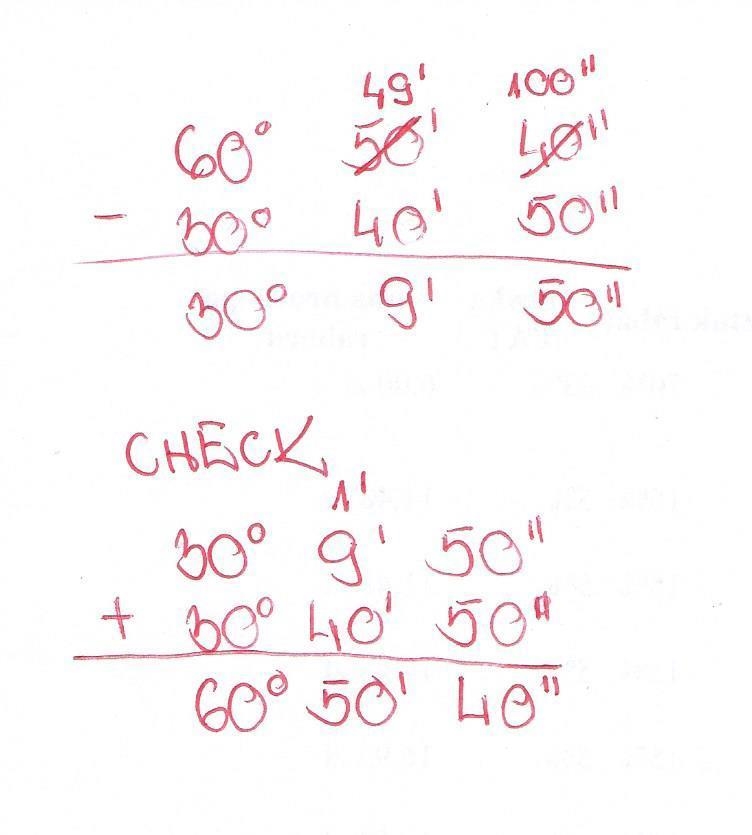 49' 100"
60° 50' 40"
- 30° 40' 50"
30° 9' 50"
CHECK
1'
30° 9' 50"
+ 30° 40' 50"
60° 50' 40"